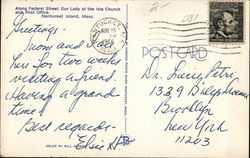 Along Federal Street, Our Lady of the Isle Church
and Post Office.
Nantucket Island, Mass.
Greetings -
Mom and I are
here for two weeks
visiting a friend.
Having a grand
time!
Best regards -
Elsie
AUG 15
POST CARD
Dr. Luray Petri,
1339 Bergen
Brooklyn
New York
11203
COLOR BY BILL